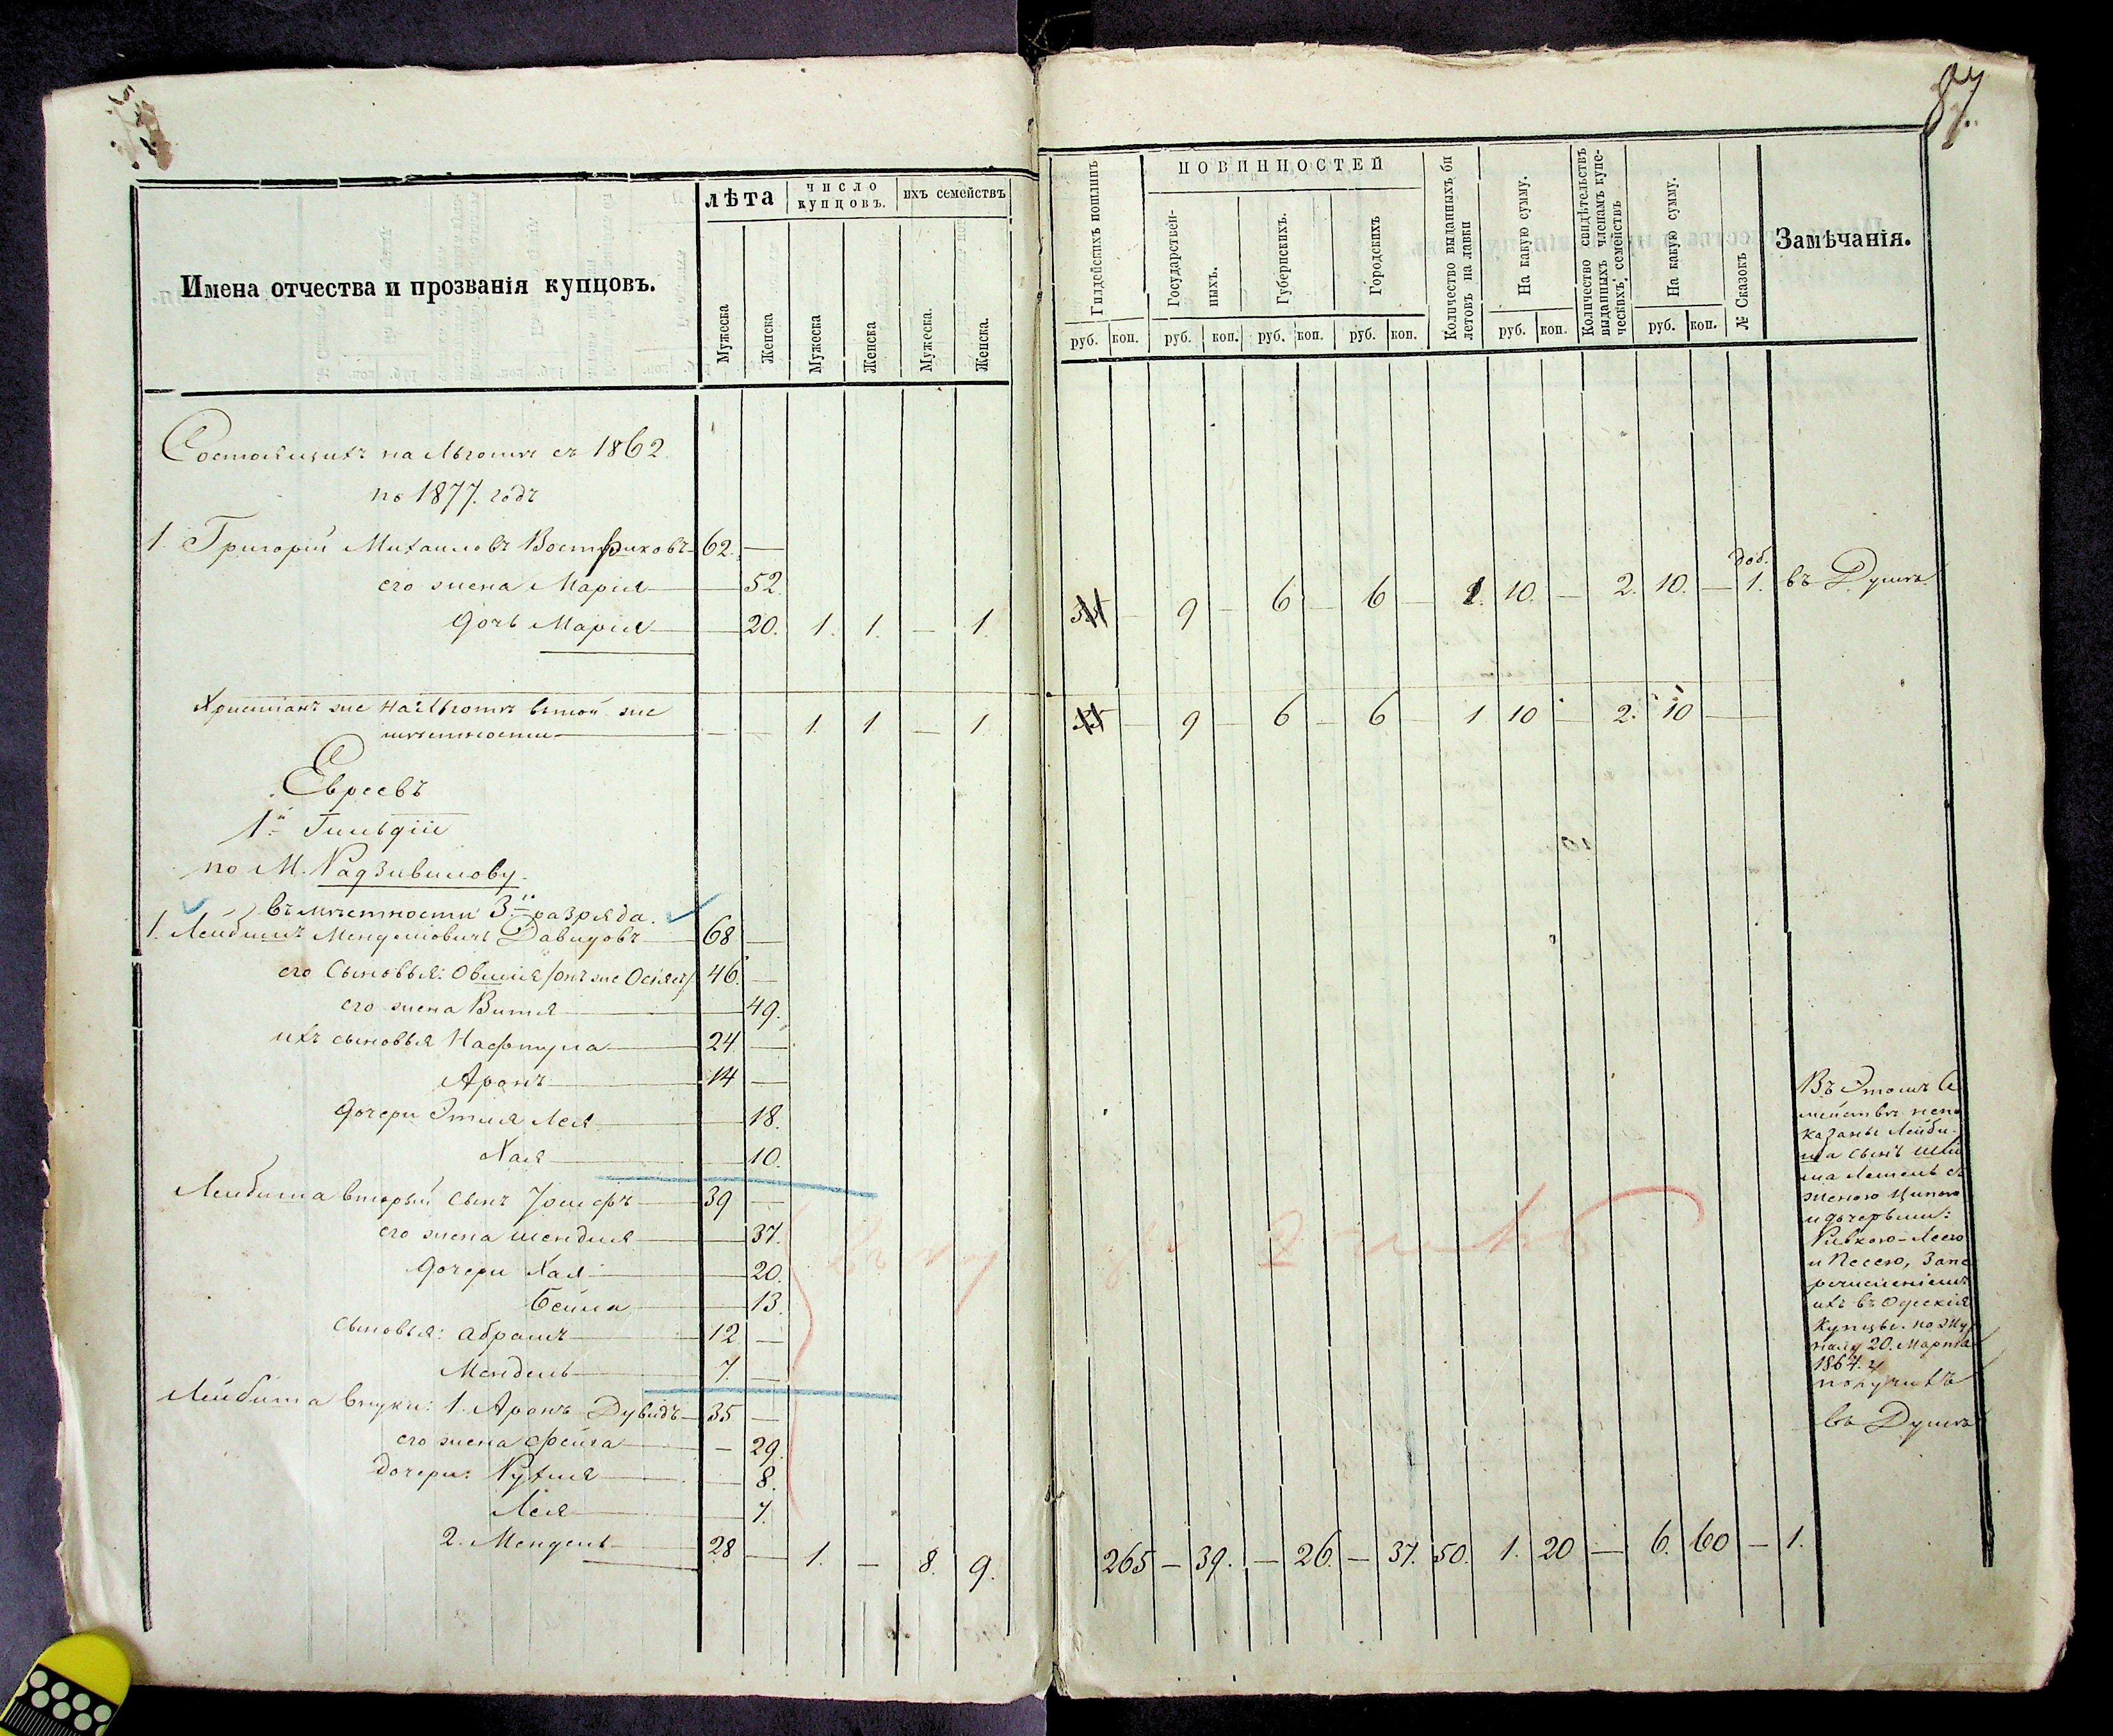 87.
Имена отчества и прозванія купцовъ.
лѣта
число купцовъ.
ихъ семействъ
Мужеска
Женска
Мужеска
Женска
Мужеска.
Женска.
Гилдейскихъ пошлинъ
ПОВИННОСТЕЙ
Государствен-
ныхъ.
Губернскихъ.
Городскихъ
Количество выданныхъ би
летовъ на лавки
На какую сумму.
Количество свидѣтельствъ
выданныхъ членамъ купе-
ческихъ семействъ
На какую сумму.
№ Сказокъ
Замѣчанія.
руб. коп. руб. коп. руб. коп. руб. коп. руб. коп. руб. коп.
Состоящихъ на льготѣ съ 1862
по 1877. годъ
1. Григорій Михаиловъ Востриковъ 62. —
его жена Марія — 52.
дочь Марія — 20. 1. 1. — 1. — 9 — 6 — 6 — 1. 10. — 2. 10. — доб. 1. въ Думѣ
Христіанъ же на льготѣ въ той же
мѣстности — — 1. 1 — 1 — 9 — 6 — 6 — 1 10 — 2. 10 — —
Евреевъ
1й Гильдіи
по М. Радзивилову.
въ мѣстности 3й разряда.
1. Лейбишъ Менделіовичъ Давидовъ 68 —
его Сыновья: Овшія /онъ же Осіясъ/ 46. —
его жена Витя — 49.
ихъ сыновья Нафтула 24 —
Аронъ 14 —
дочери Этля Лея — 18.
Хая — 10.
Лейбиша вторый сынъ Іошефъ 39 —
его жена Шендля — 37.
дочери Хая — 20.
Бейла — 13.
Сыновья: Абрамъ 12 —
Мендель 7. —
Лейбиша внуки: 1. Аронъ Дувидъ 35 —
его жена Фейга — 29.
дочери: Рухля — 8.
Лея — 7.
2. Мендель 28 — 1. — 8. 9. 265 — 39. — 26. — 37. 50. 1. 20 — 6. 60 — 1.
Въ Этомъ Се
мействѣ непо
казаны Лейби-
ша сынъ
съ
женою
и дочерьми:
Ривкою-Леею
и Песею, За пе
речисленіемъ
ихъ въ Одескія
Купцы. по жур
налу 20. Марта
1864. г
получихъ
въ Думѣ